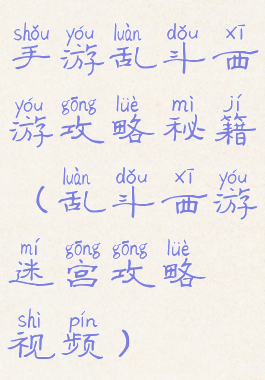 shǒu yóu luàn dǒu xī
手游乱斗西
yóu gōng lüè mì jí
游攻略秘籍
luàn dǒu xī yóu
(乱斗西游
mí gōng gōng lüè
迷宫攻略
shì pín
视频)